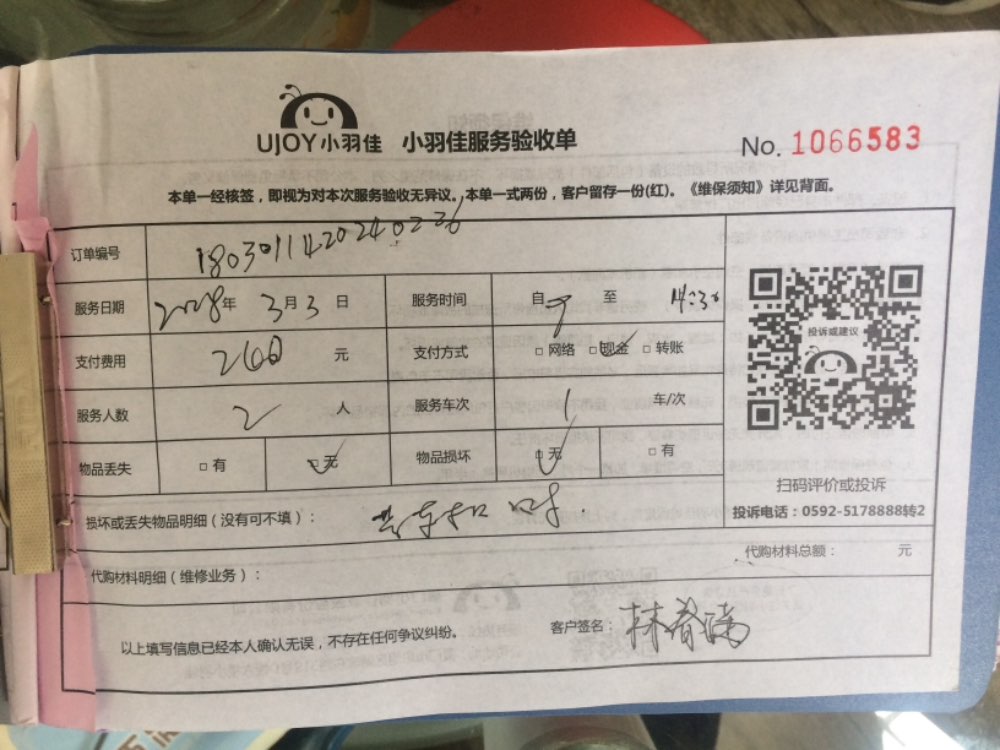 UJOY小羽佳 小羽佳服务验收单
No. 1066583
本单一经核签，即视为对本次服务验收无异议。本单一式两份，客户留存一份(红)。《维保须知》详见背面。
订单编号 1803011420240226
服务日期 2018年 3月3日 服务时间 自 9 至 14:30
投诉或建议
支付费用 260 元 支付方式 □网络 □现金 □转账
服务人数 2 人 服务车次 1 车/次
物品丢失 □有 □无 物品损坏 □无 □有
扫码评价或投诉
损坏或丢失物品明细（没有可不填）：
投诉电话：0592-5178888转2
代购材料总额： 元
代购材料明细（维修业务）：
以上填写信息已经本人确认无误，不存在任何争议纠纷。 客户签名：林春满